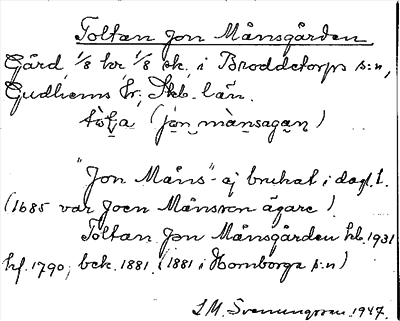 Toltan Jon Månsgården
Gård 1/8 kr 1/8 sk. i Broddetorps s:n,
Gudhems hr, Skb. län.
(jon mànsagan)
"Jon Måns" - ej brukat i dagl. t.
(1685 var Joen Månsson ägare).
Toltan Jon Månsgården hb. 1931
hf. 1790, bek. 1881. (1881 i Hornborga s:n)
S.M. Svenungsson. 1947.